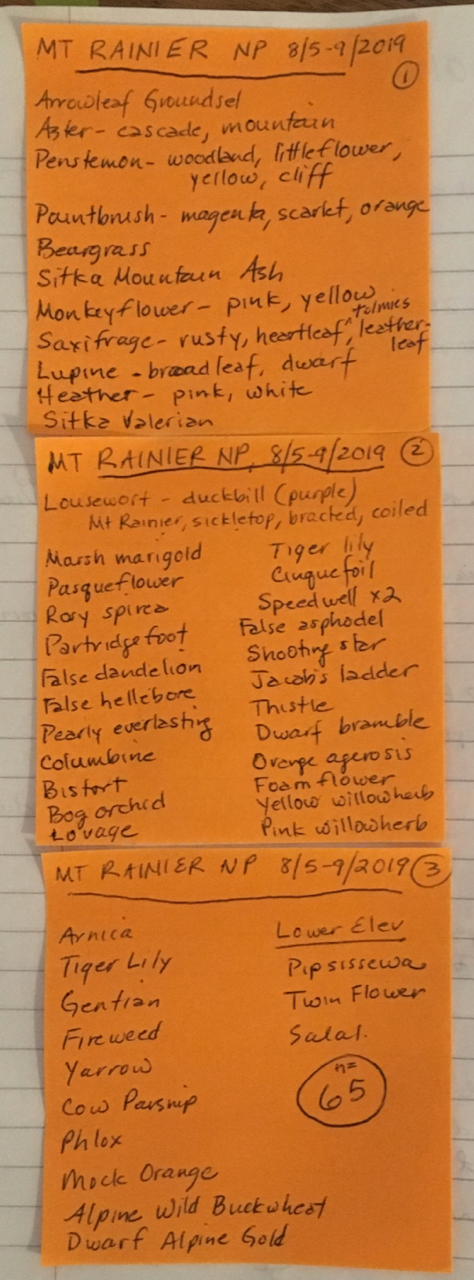 MT RAINIER NP 8/5-9/2019
1
Arrowleaf Groundsel
Aster - cascade, mountain
Penstemon - woodland, littleflower,
yellow, cliff
Paintbrush - magenta, scarlet, orange
Beargrass
Sitka Mountain Ash
Monkeyflower - pink, yellow
tolmies
Saxifrage - rusty, heartleaf ^, leather-
leaf
Lupine - broad leaf, dwarf
Heather - pink, white
Sitka Valerian
MT RAINIER NP, 8/5-9/2019 2
Lousewort - duckbill (purple)
Mt Rainier, sickletop, bracted, coiled
Marsh marigold
Pasqueflower
Rosy spirea
Partridgefoot
False dandelion
False hellebore
Pearly everlasting
Columbine
Bistort
Bog orchid
Lovage
Tiger lily
Cinquefoil
Speedwell x2
False asphodel
Shooting star
Jacob's ladder
Thistle
Dwarf bramble
Orange agerosis
Foam flower
Yellow willowherb
Pink willowherb
MT RAINIER NP 8/5-9/2019 3
Arnica
Tiger Lily
Gentian
Fireweed
Yarrow
Cow Parsnip
Phlox
Mock Orange
Alpine Wild Buckwheat
Dwarf Alpine Gold
Lower Elev
Pipsissewa
Twin Flower
Salal.
n=
65